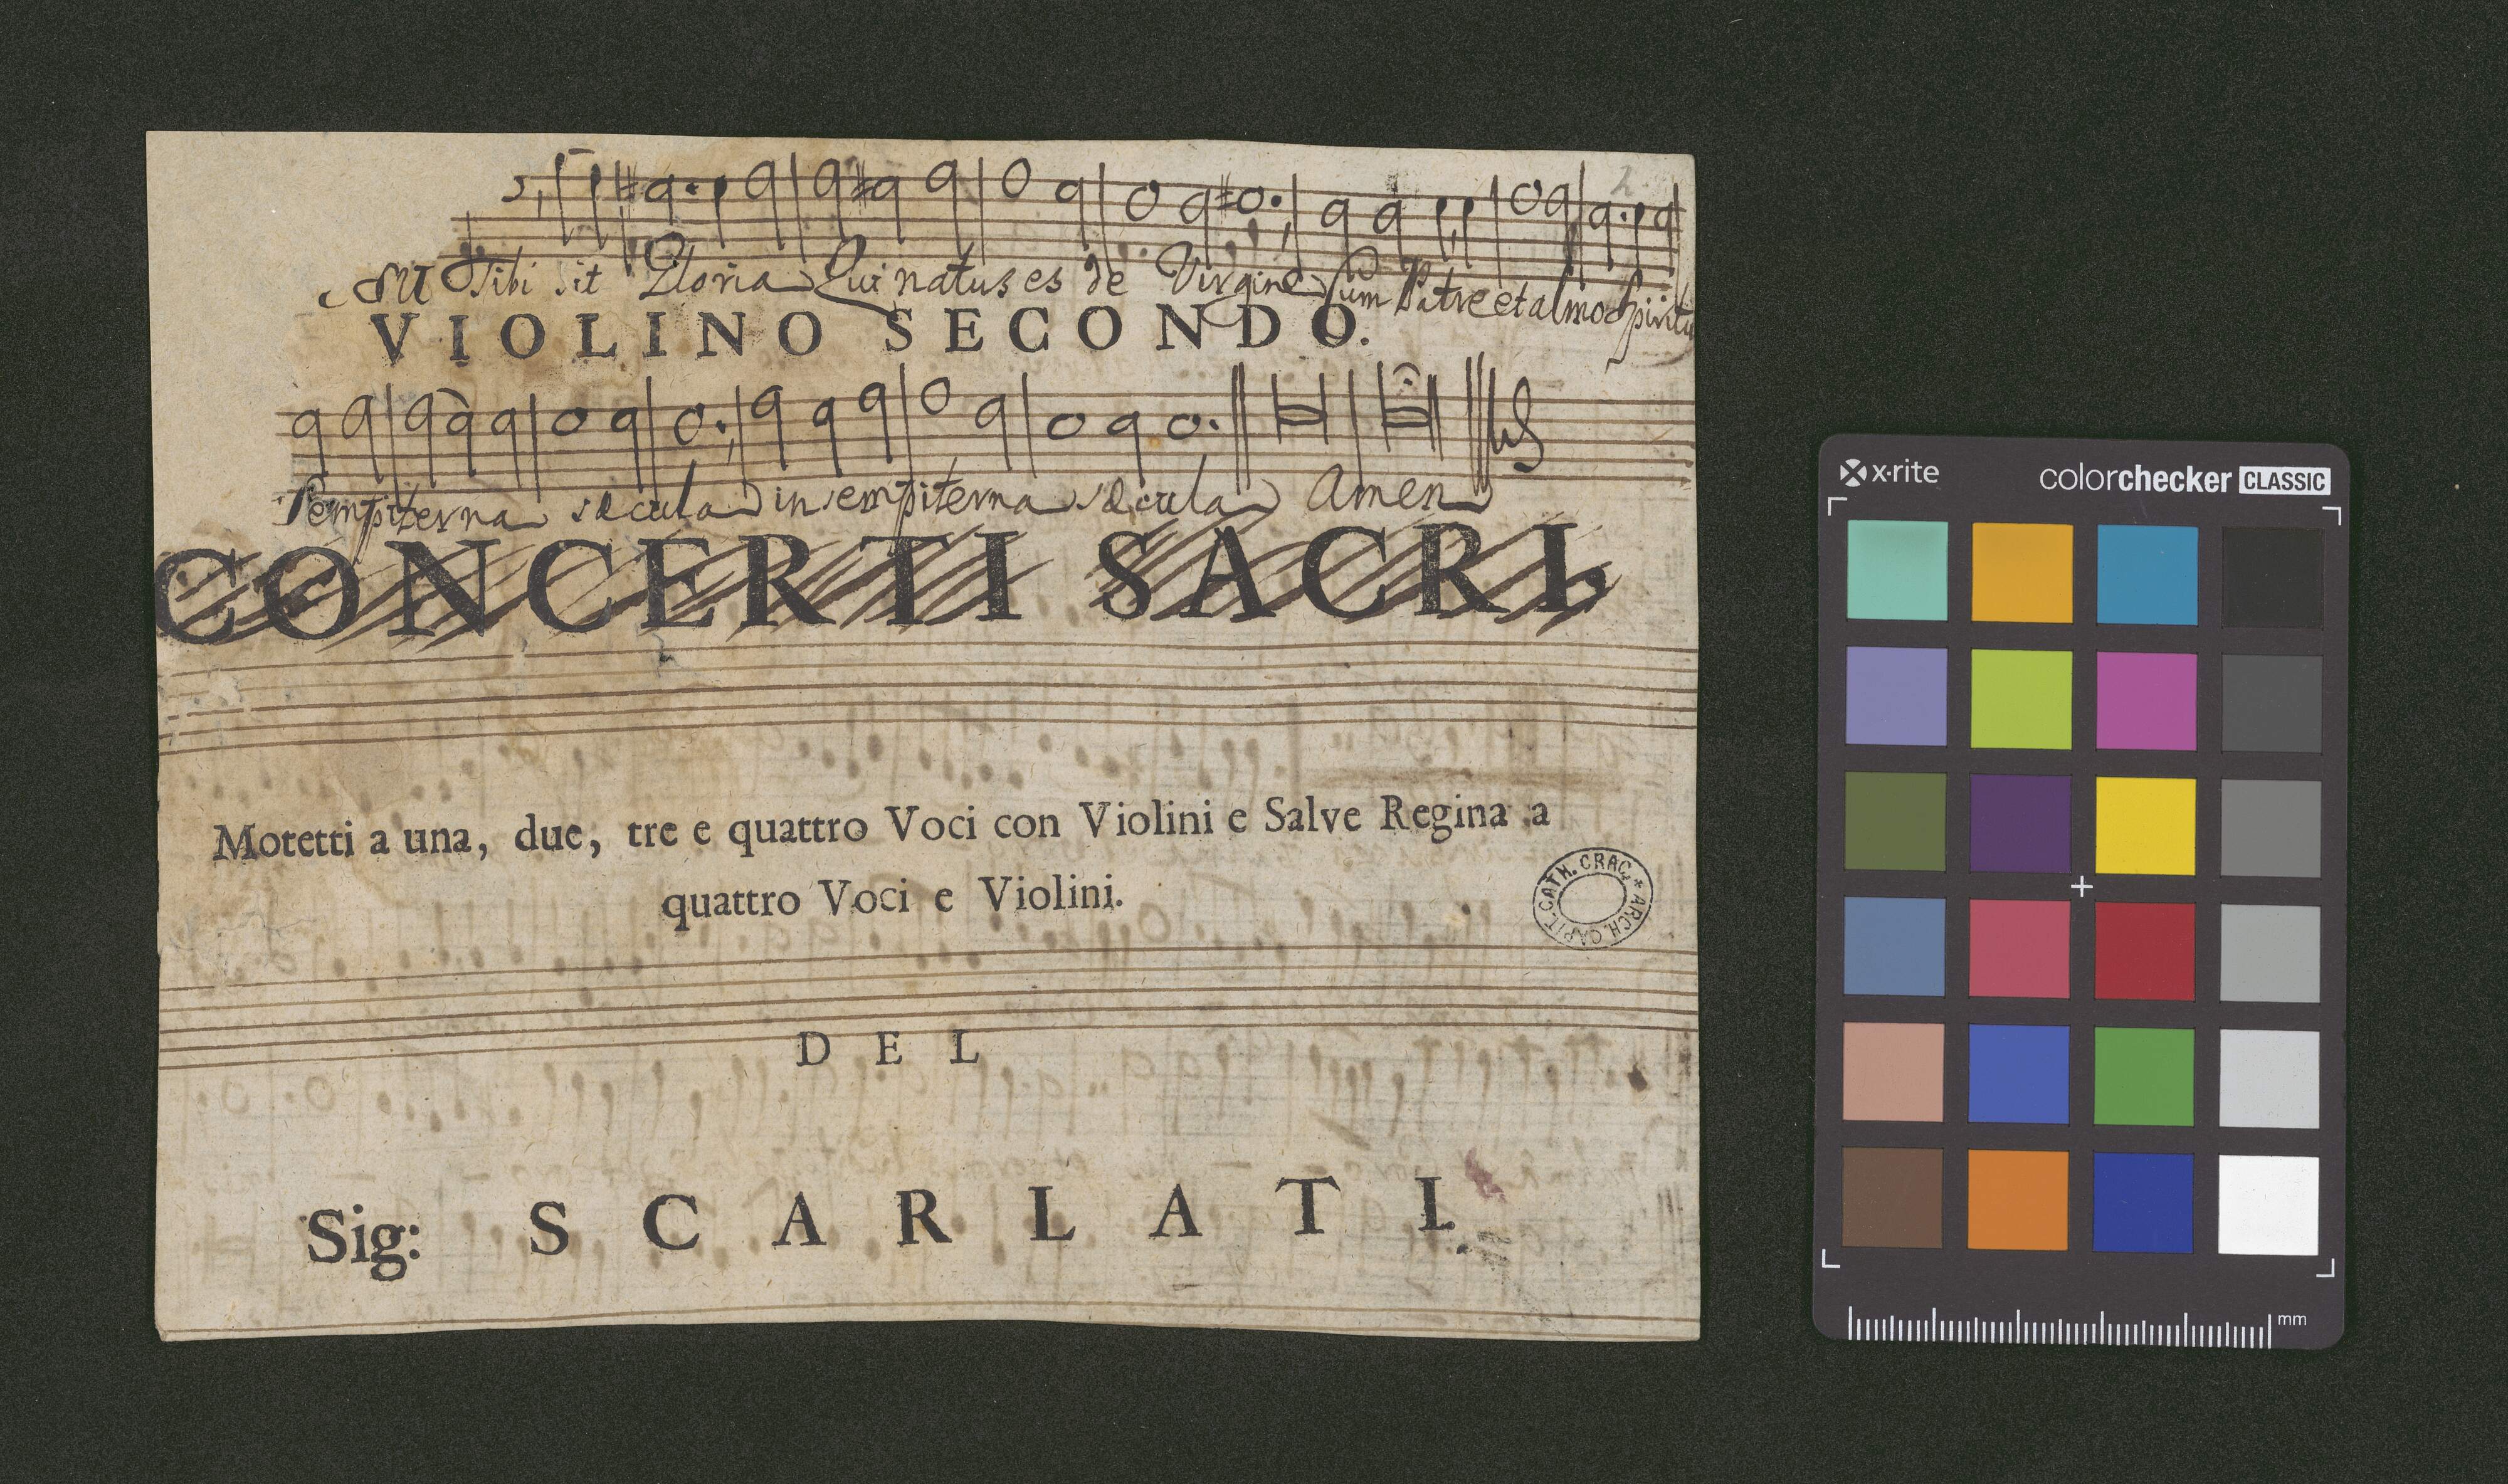 2
Jesu Tibi sit Gloria Qui natus es de Virgine Cum Patre et almo Spiritu
VIOLINO SECONDO.
Sempiterna sæcula in sempiterna sæcula Amen
CONCERTI SACRI.
Motetti a una, due, tre e quattro Voci con Violini e Salve Regina a
quattro Voci e Violini.
ARCH. CAPIT. CATH. CRAC. *
DEL
Sig: SCARLATI.
x-rite
colorchecker CLASSIC
mm